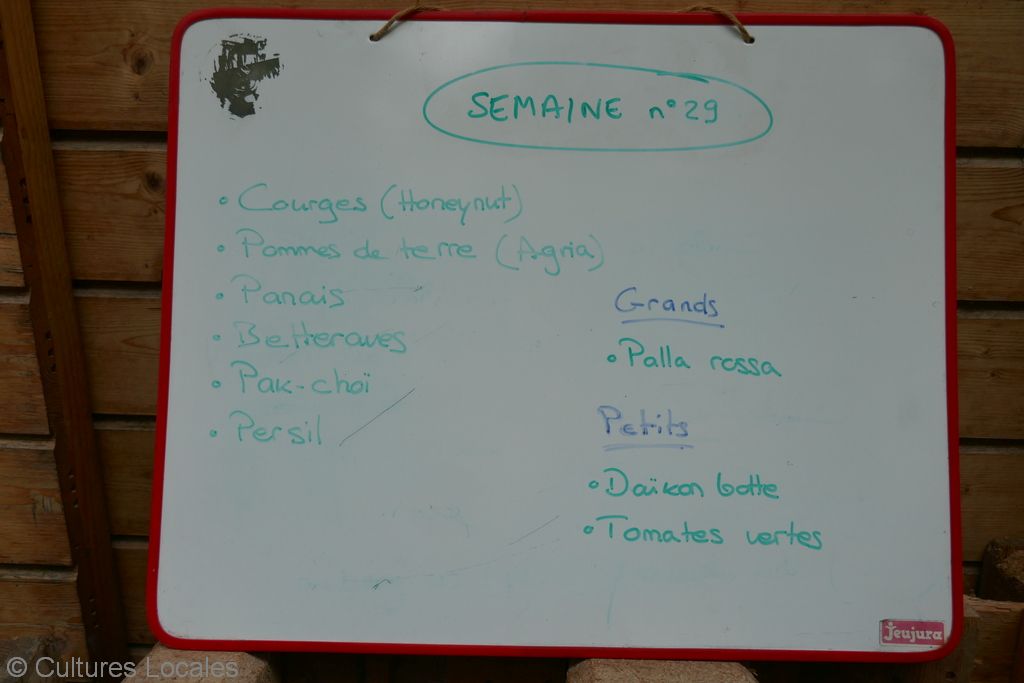 SEMAINE n° 29
• Courges (Honeynut)
• Pommes de terre (Agria)
• Panais
• Betteraves
• Pak-choï
• Persil
Grands
• Palla rossa
Petits
• Daïkon botte
• Tomates vertes
Jeujura
© Cultures Locales